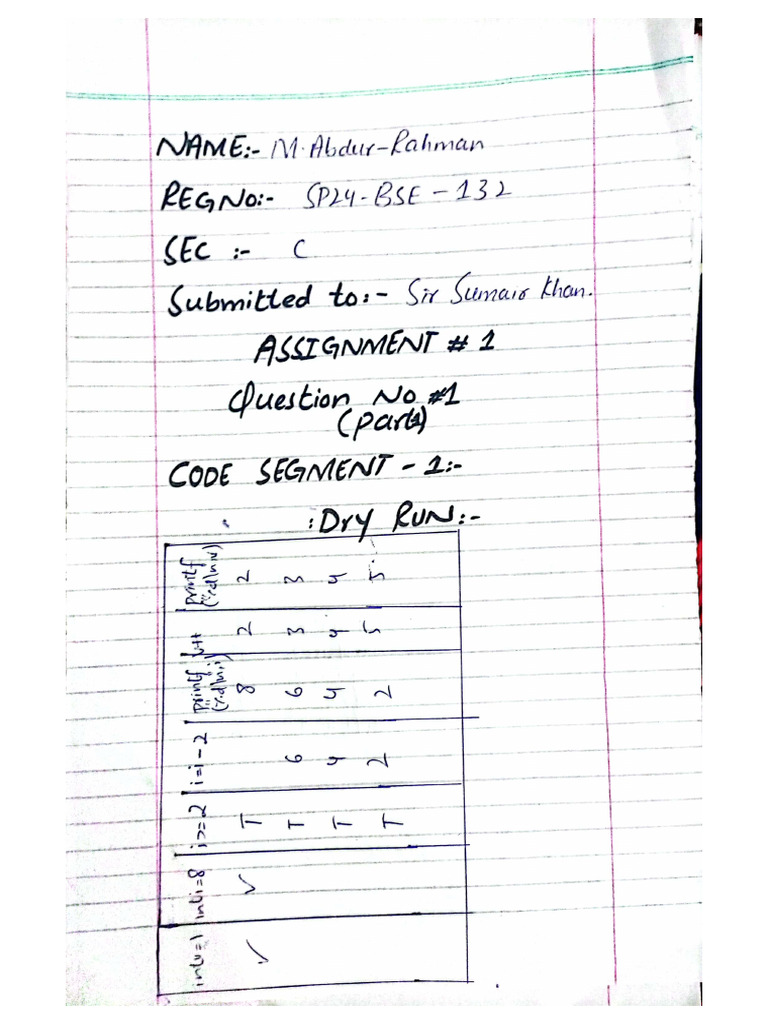 NAME:- M.Abdur-Rahman
REGNO:- SP24-BSE-132
SEC :- C
Submitted to:- Sir Sumair Khan.
ASSIGNMENT # 1
Question No #1
(Part1)
CODE SEGMENT - 1:-
:Dry RUN:-
int v=1 int i=8 i>=2 i=i-2 printf ("%d\n",i) v++ printf ("%d\n",v)
✓ ✓ T 8 2 2
T 6 6 3 3
T 4 4 4 4
T 2 2 5 5